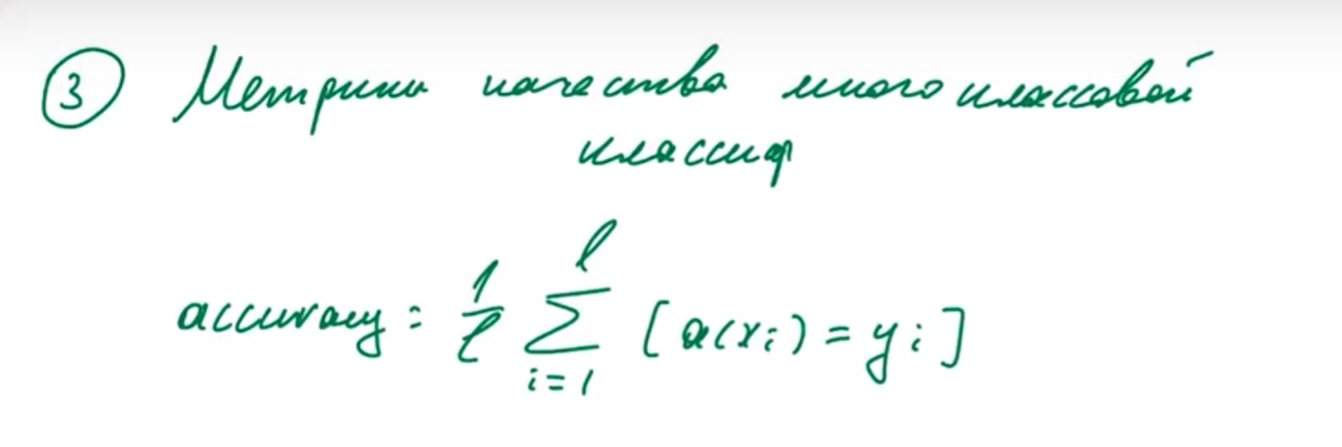 ③ Метрики качества многоклассовой
классиф
accuracy: 1/ℓ ∑_{i=1}^{ℓ} [a(xᵢ) = yᵢ]